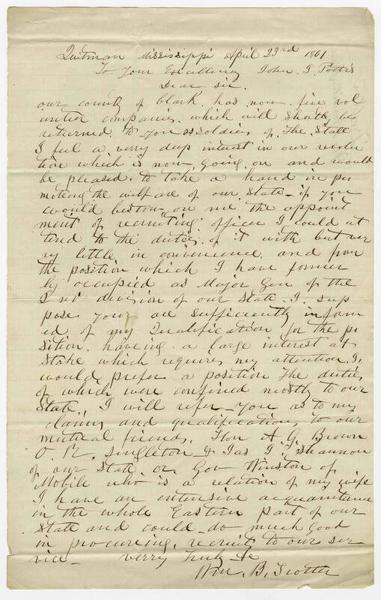 Quitman Mississippi April 23rd 1861
To Your Excellency John J Pettus
Dear Sir.
our county of Clark has now five vol
unteer companies which will shortly be
returned to you as soldiers of the State
I feel a very deep interest in our revolu
tion which is now going on and would
be pleased to take a hand in pro
moting the welfare of our State - if you
would bestow on me the appoint
ment of recruiting officer I could at
tend to the duties of it with but ver
ry little in convenience and from
the position which I have former
ly occupied as Major Gen of the
2nd division of our State I sup
pose you are sufficiently inform
ed of my Qualification for the po
sition. having a large interest at
stake which requires my attention I
would prefer a position the duties
of which were confined mostly to our
State, I will refer you as to my
claims and qualifications to our
mutual friends, Hon A. G. Brown
O. R. Singleton & Jas T. Shannon
of our State or Gov Winston of
Mobile who is a relation of my wife
I have an extensive acquaintance
in the whole Eastern part of our
State and could do much good
in procuring recruits to our ser
vice - verry truly &c
Wm. B. Trotter